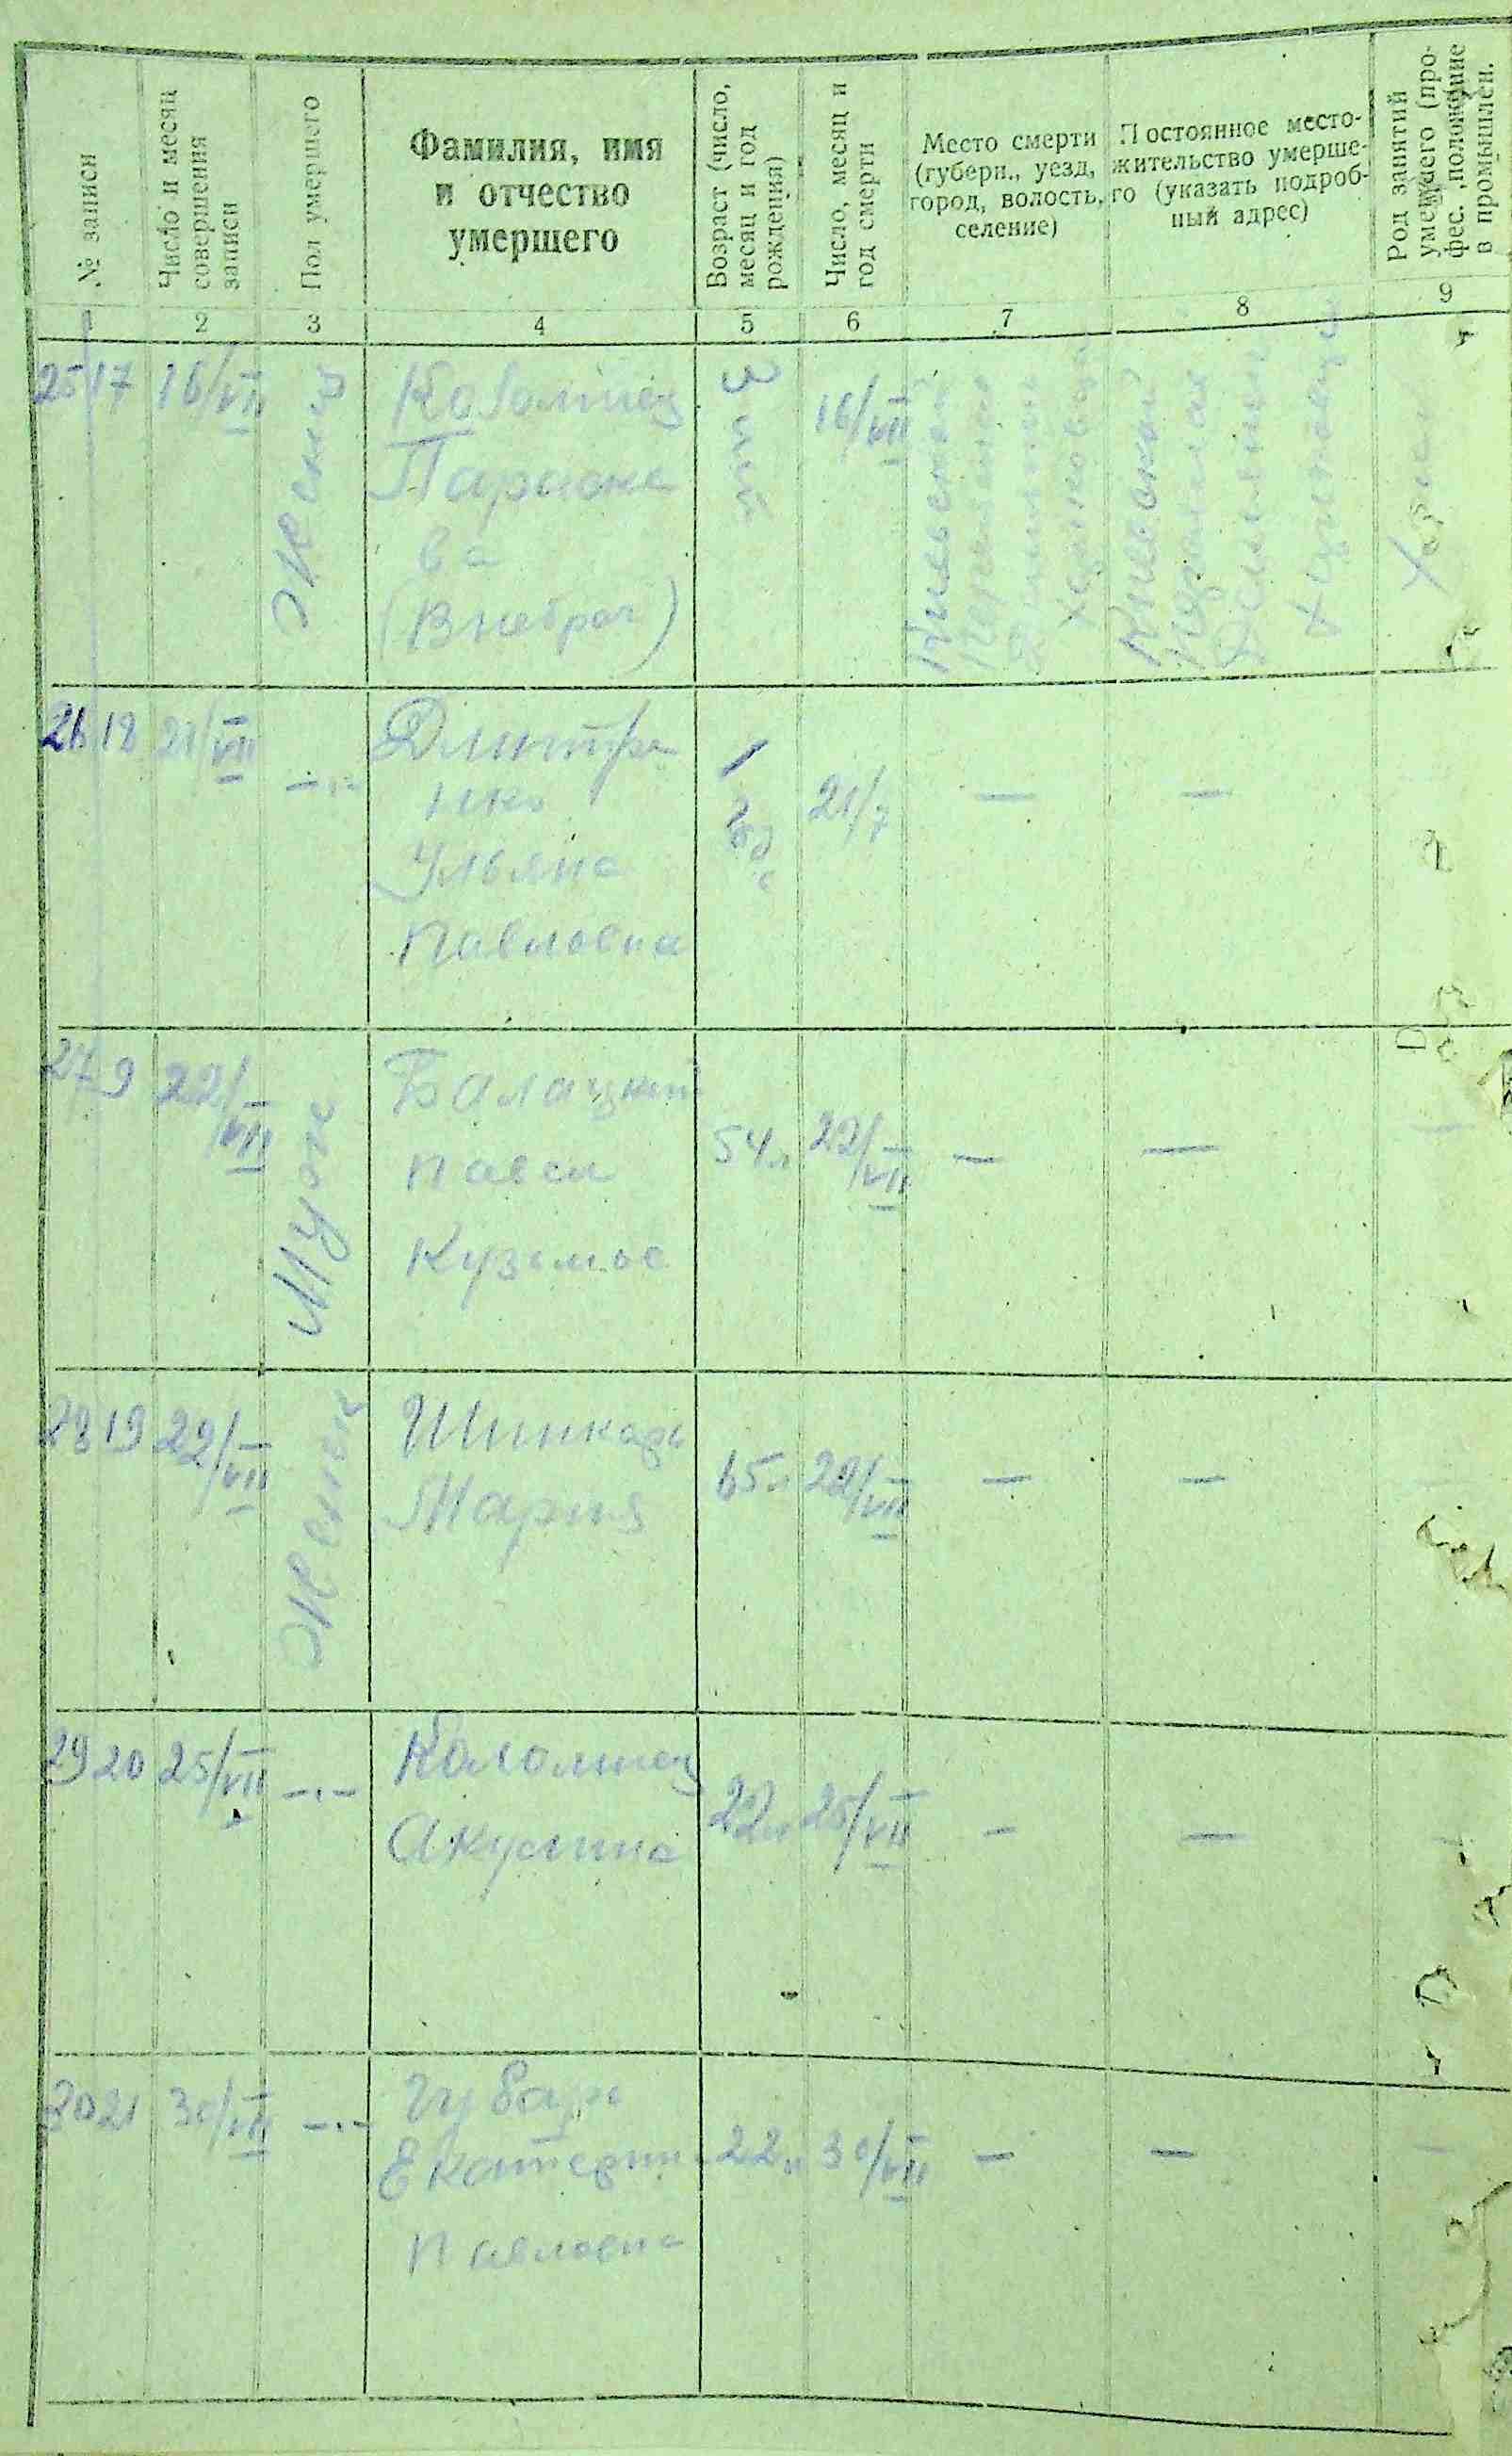 № записи
Число и месяц
совершения
записи
Пол умершего
Фамилия, имя
и отчество
умершего
Возраст (число,
месяц и год
рождения)
Число, месяц и
год смерти
Место смерти
(губерн., уезд,
город, волость,
селение)
Постоянное место-
жительство умерше-
го (указать подроб-
ный адрес)
Род занятий
умершего (про-
фес. положение
в промышлен.
1 2 3 4 5 6 7 8 9
25 17 16/VII
Коломиец
Параске
ва
(Внебрач)
16/VII
26 18 21/VII —"—
Дмитре
нко
Ульяна
Павловна
1
год
21/7 — —
27 9 22/VII Муж
Балацкий
Павел
Кузьмов
54 л 22/VII — —
28 19 22/VII
Шинкарь
Мария
65 л 22/VII — —
29 20 25/VII —"—
Коломиец
Акулина
22 л 25/VII — —
30 21 30/VII —"—
Чубарь
Екатерин
Павловна
22 л 30/VII — —